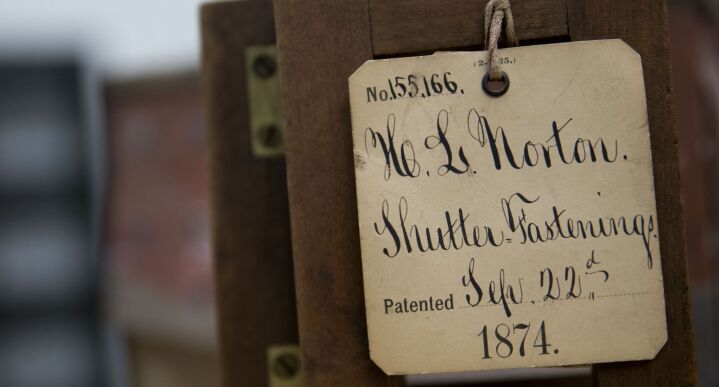 No. 155,166.
H. L. Norton.
Shutter=Fastenings.
Patented Sep. 22d
1874.